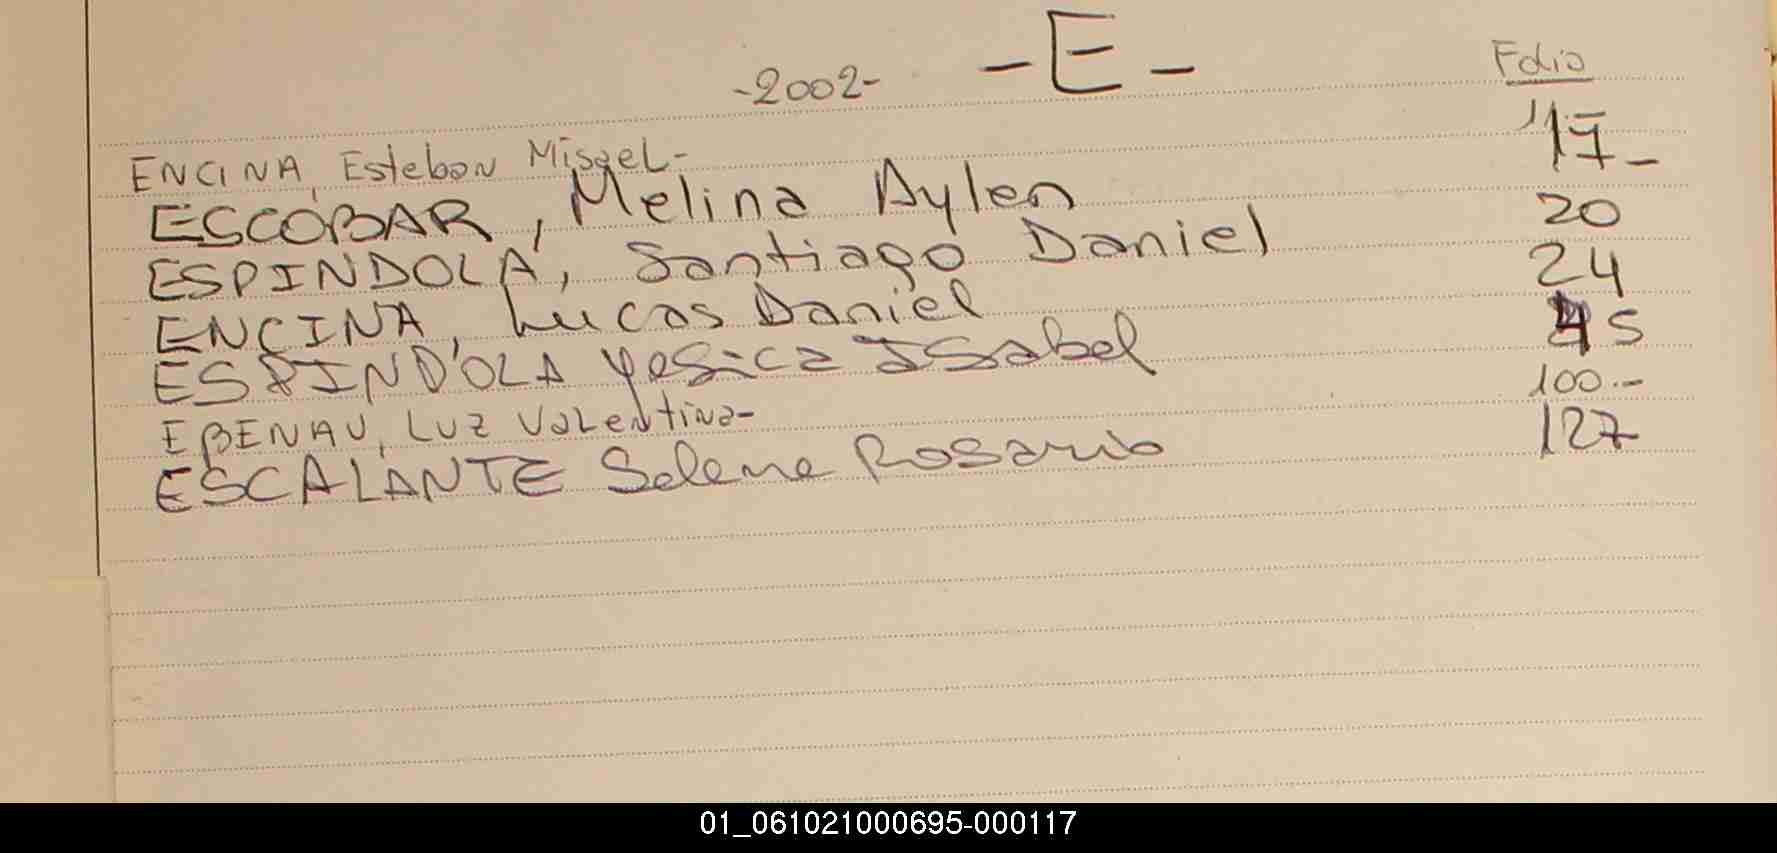 -2002- -E- Folio
ENCINA, Esteban MisaeL-
ESCOBAR, Melina Aylen 17-
ESPINDOLA, Santiago Daniel 20
ENCINA, Lucas Daniel 24
ESPINDOLA Yesica Isabel 45
EBENAU, LUZ VaLentina- 100.-
ESCALANTE Selene Rosario 127
01_061021000695-000117